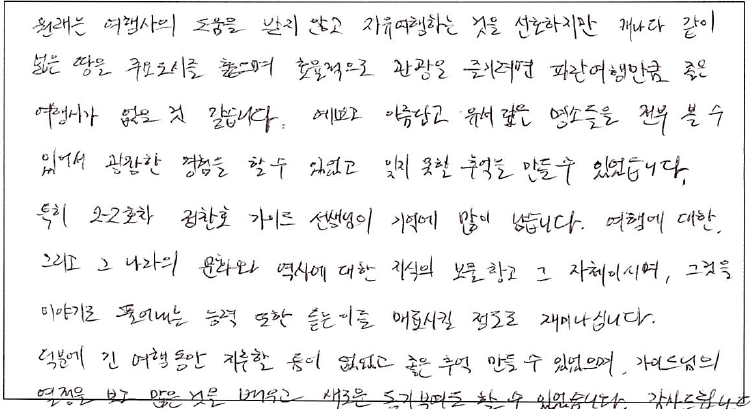 원래는 여행사의 도움을 받지 않고 자유여행하는 것을 선호하지만 캐나다 같이
넓은 땅을 주요도시를 훑으며 효율적으로 관광을 즐기려면 파란여행만큼 좋은
여행사가 없을 것 같습니다. 예쁘고 아름답고 유서 깊은 명소들을 전부 볼 수
있어서 굉장한 경험을 할 수 있었고 잊지 못할 추억을 만들 수 있었습니다.
특히 2-2호차 권찬호 가이드 선생님이 기억에 많이 남습니다. 여행에 대한,
그리고 그 나라의 문화와 역사에 대한 지식의 보물창고 그 자체이시며, 그것을
이야기로 풀어내는 능력 또한 듣는이를 매료시킬 정도로 재미나십니다.
덕분에 긴 여행동안 지루할 틈이 없었고 좋은 추억 만들 수 있었으며, 가이드님의
열정을 보고 많은 것을 배우고 새로운 동기부여를 할 수 있었습니다. 감사드립니다